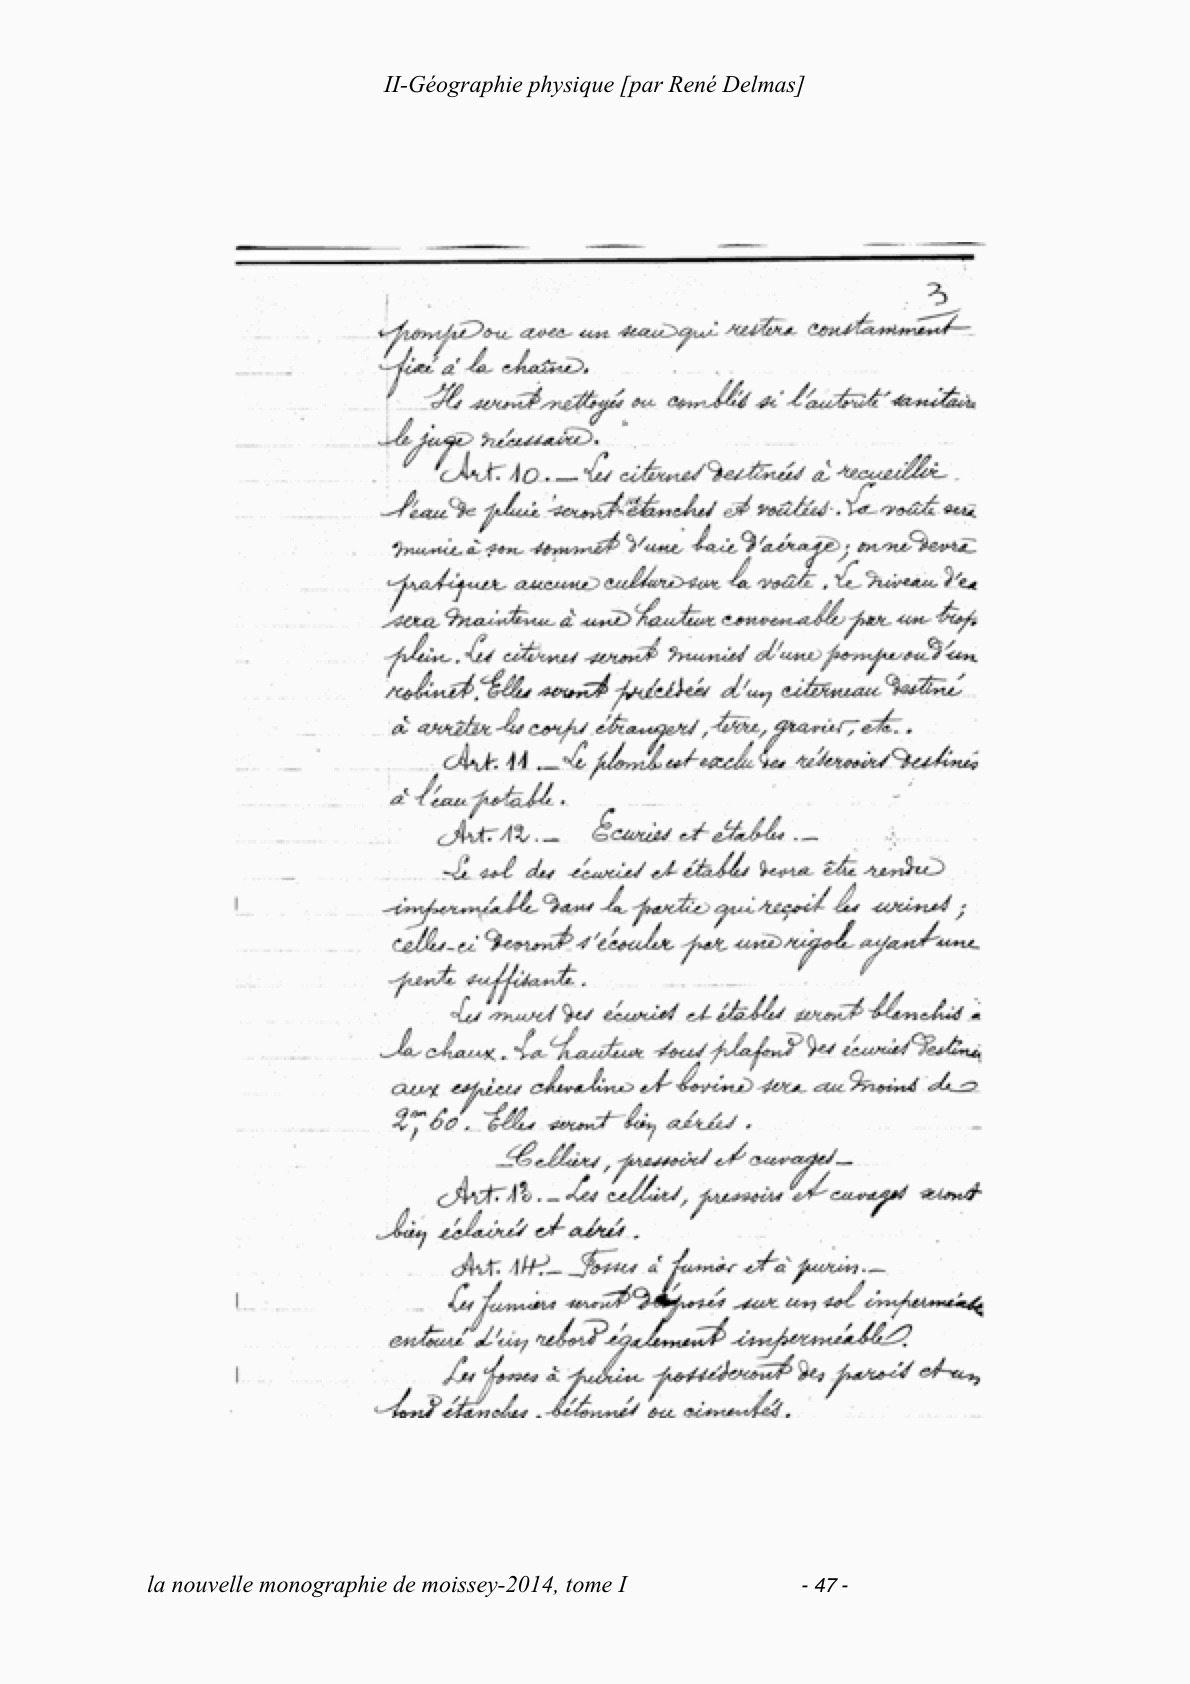 II-Géographie physique [par René Delmas]
3
pompe ou avec un seau qui restera constamment
fixé à la chaîne.
Ils seront nettoyés ou comblés si l'autorité sanitaire
le juge nécessaire.
Art. 10. — Les citernes destinées à recueillir
l'eau de pluie seront étanches et voûtées. La voûte sera
munie à son sommet d'une baie d'aérage ; on ne devra
pratiquer aucune culture sur la voûte. Le niveau d'ea
sera maintenu à une hauteur convenable par un trop
plein. Les citernes seront munies d'une pompe ou d'un
robinet. Elles seront précédées d'un citerneau destiné
à arrêter les corps étrangers, terre, gravier, etc..
Art. 11. — Le plomb est exclu des réservoirs destinés
à l'eau potable.
Art. 12. — Ecuries et étables. —
Le sol des écuries et étables devra être rendu
imperméable dans la partie qui reçoit les urines ;
celles-ci devront s'écouler par une rigole ayant une
pente suffisante.
Les murs des écuries et étables seront blanchis à
la chaux. La hauteur sous plafond des écuries destinés
aux espèces chevaline et bovine sera au moins de
2m,60. Elles seront bien aérées.
— Celliers, pressoirs et cuvages —
Art. 13. — Les celliers, pressoirs et cuvages seront
bien éclairés et aérés.
Art. 14. — Fosses à fumier et à purin. —
Les fumiers seront déposés sur un sol imperméable
entouré d'un rebord également imperméable.
Les fosses à purin posséderont des parois et un
fond étanches, bétonnés ou cimentés.
la nouvelle monographie de moissey-2014, tome I
- 47 -